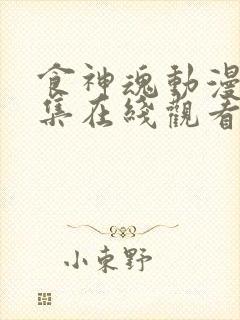 食神魂動漫
集在綫觀看
小東野